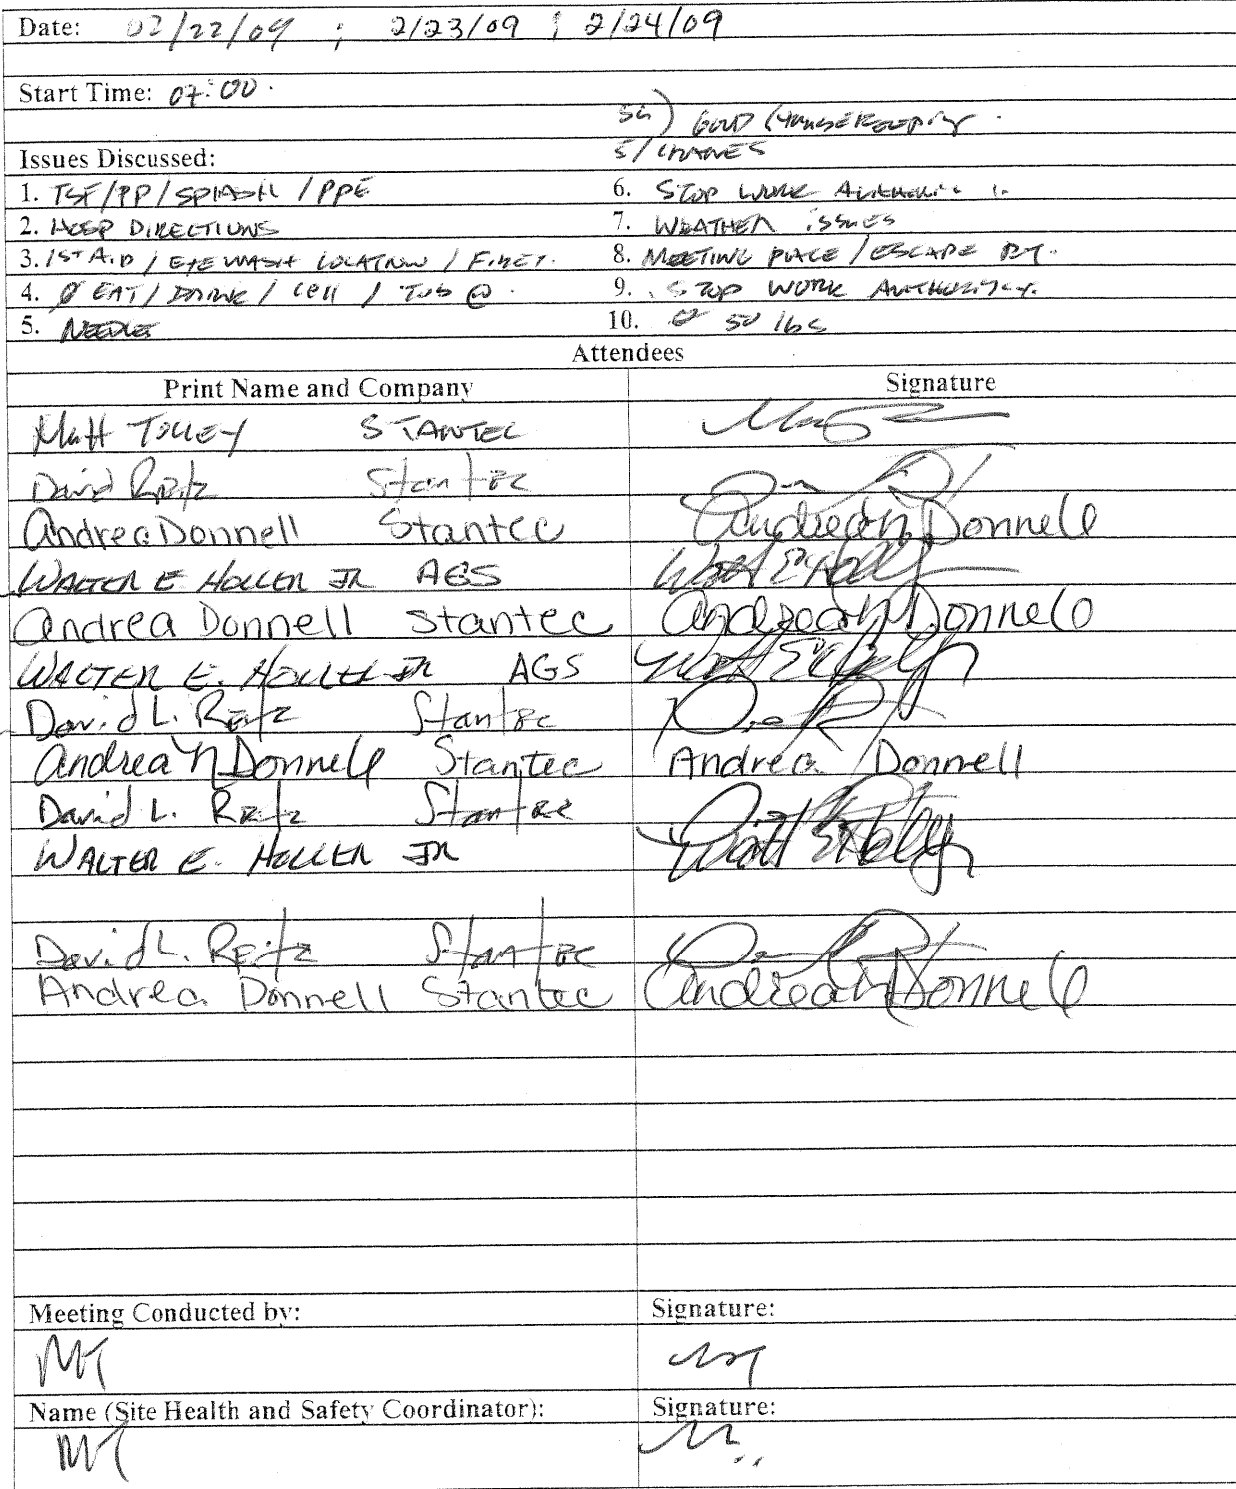 Date: 02/22/09 ; 2/23/09 ; 2/24/09
Start Time: 07:00.
5a) GOOD HOUSEKEEPING.
Issues Discussed: 5/
1. TSF/PP/SPLASH / PPE 6. STOP WORK
2. HOSP DIRECTIONS 7. WEATHER ISSUES
3. 1ST AID / EYE WASH LOCATION / 8. MEETING PLACE / ESCAPE RT.
4. Ø EAT / DRINK / CELL / TOB @. 9. STOP WORK AUTHORITY.
5. NEEDLES 10. 50 lbs
Attendees
Print Name and Company Signature
Matt TOLLEY STANTEC
David Reitz Stantec
Andrea Donnell Stantec Andrea N Donnell
WALTER E HOLLER JR AGS
Andrea Donnell Stantec Andrea N Donnell
WALTER E. HOLLER JR AGS
David L. Reitz Stantec
Andrea N Donnell Stantec Andrea Donnell
David L. Reitz Stantec
WALTER E. HOLLER JR
David L. Reitz Stantec
Andrea Donnell Stantec Andrea N Donnell
Meeting Conducted by: Signature:
MT
Name (Site Health and Safety Coordinator): Signature:
MT